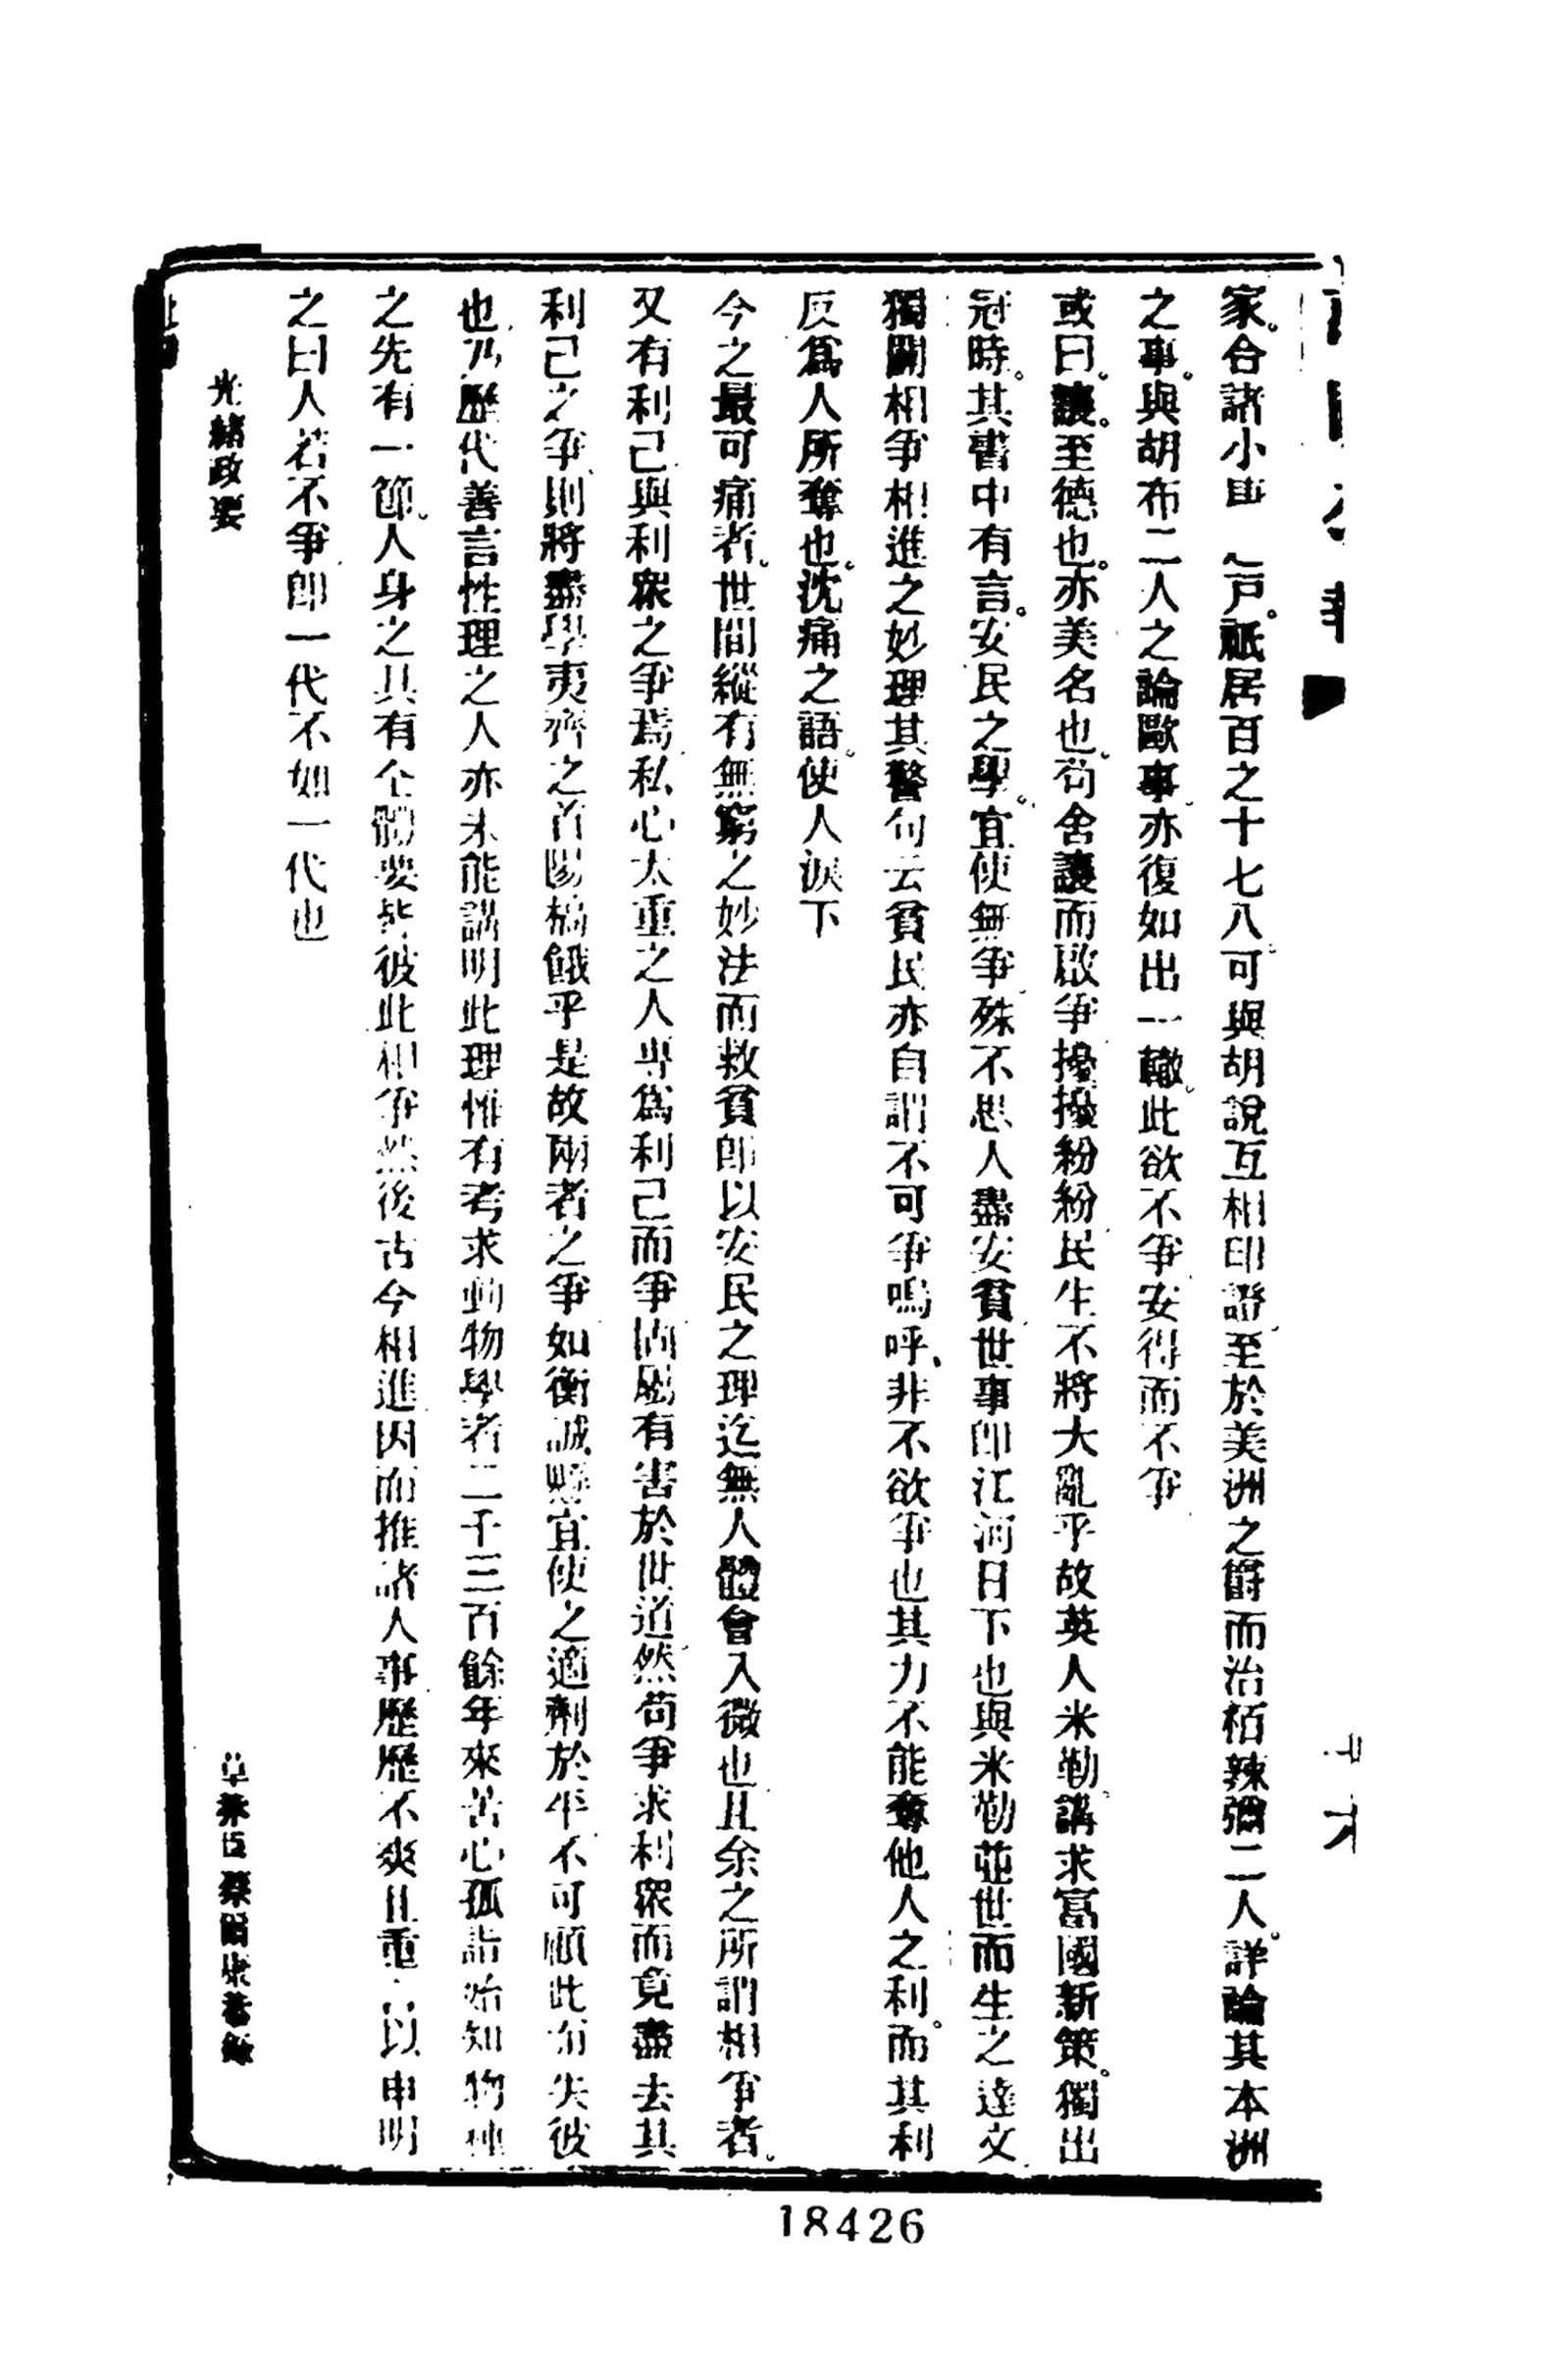 家。合諸小 戸。祇居百之十七八。可與胡說互相印證至於美洲之爵而治栢辣彌二人。詳論其本洲
之事。與胡布二人之論歐事亦復如出一轍。此欲不爭安得而不爭
或曰。讓。至德也。亦美名也。苟舍讓而啟爭擾擾紛紛民生不將大亂乎故英人米勒講求富國新策。獨出
冠時。其書中有言。安民之學。宜使無爭殊不思人盡安貧世事卽江河日下也與米勒並世而生之達文
獨闢相爭相進之妙理其警句云貧民亦自謂不可爭嗚呼、非不欲爭也其力不能奪他人之利。而其利
反爲人所奪也。沈痛之語。使人淚下
今之最可痛者。世間縱有無窮之妙法而救貧卽以安民之理迄無人體會入微也且余之所謂相爭者。
又有利己與利衆之爭焉私心太重之人專爲利己而爭固屬有害於世道然苟爭求利衆而竟盡去其
利己之爭則將盡學夷齊之首陽槁餓乎是故兩者之爭如衡誠懸宜使之適劑於平不可顧此而失彼
也乃歷代善言性理之人亦未能講明此理惟有考求動物學者二千三百餘年來苦心孤詣始知物種
之先有一節。人身之具有全體要皆彼此相爭然後古今相進因而推諸人事歷歷不爽且重 以申明
之曰人若不爭卽一代不如一代也
光緖政要
草莽臣蔡爾康蕃錄
18426